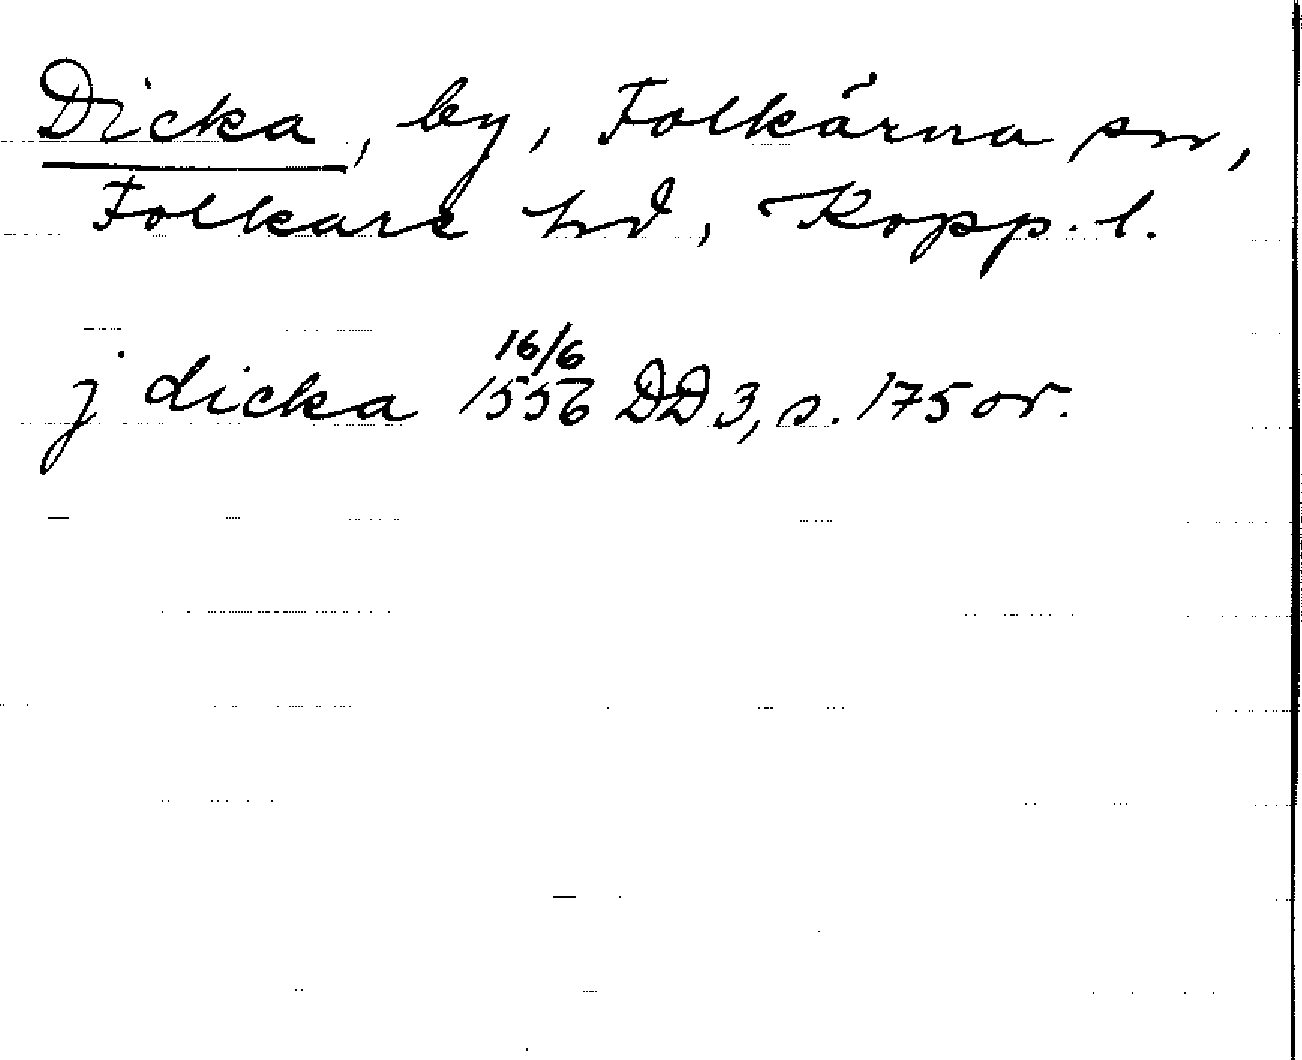 Dicka, by, Folkärna sn,
Folkare hd, Kopp. l.
j dicka 16/6 1556 DD 3, s. 175 or.